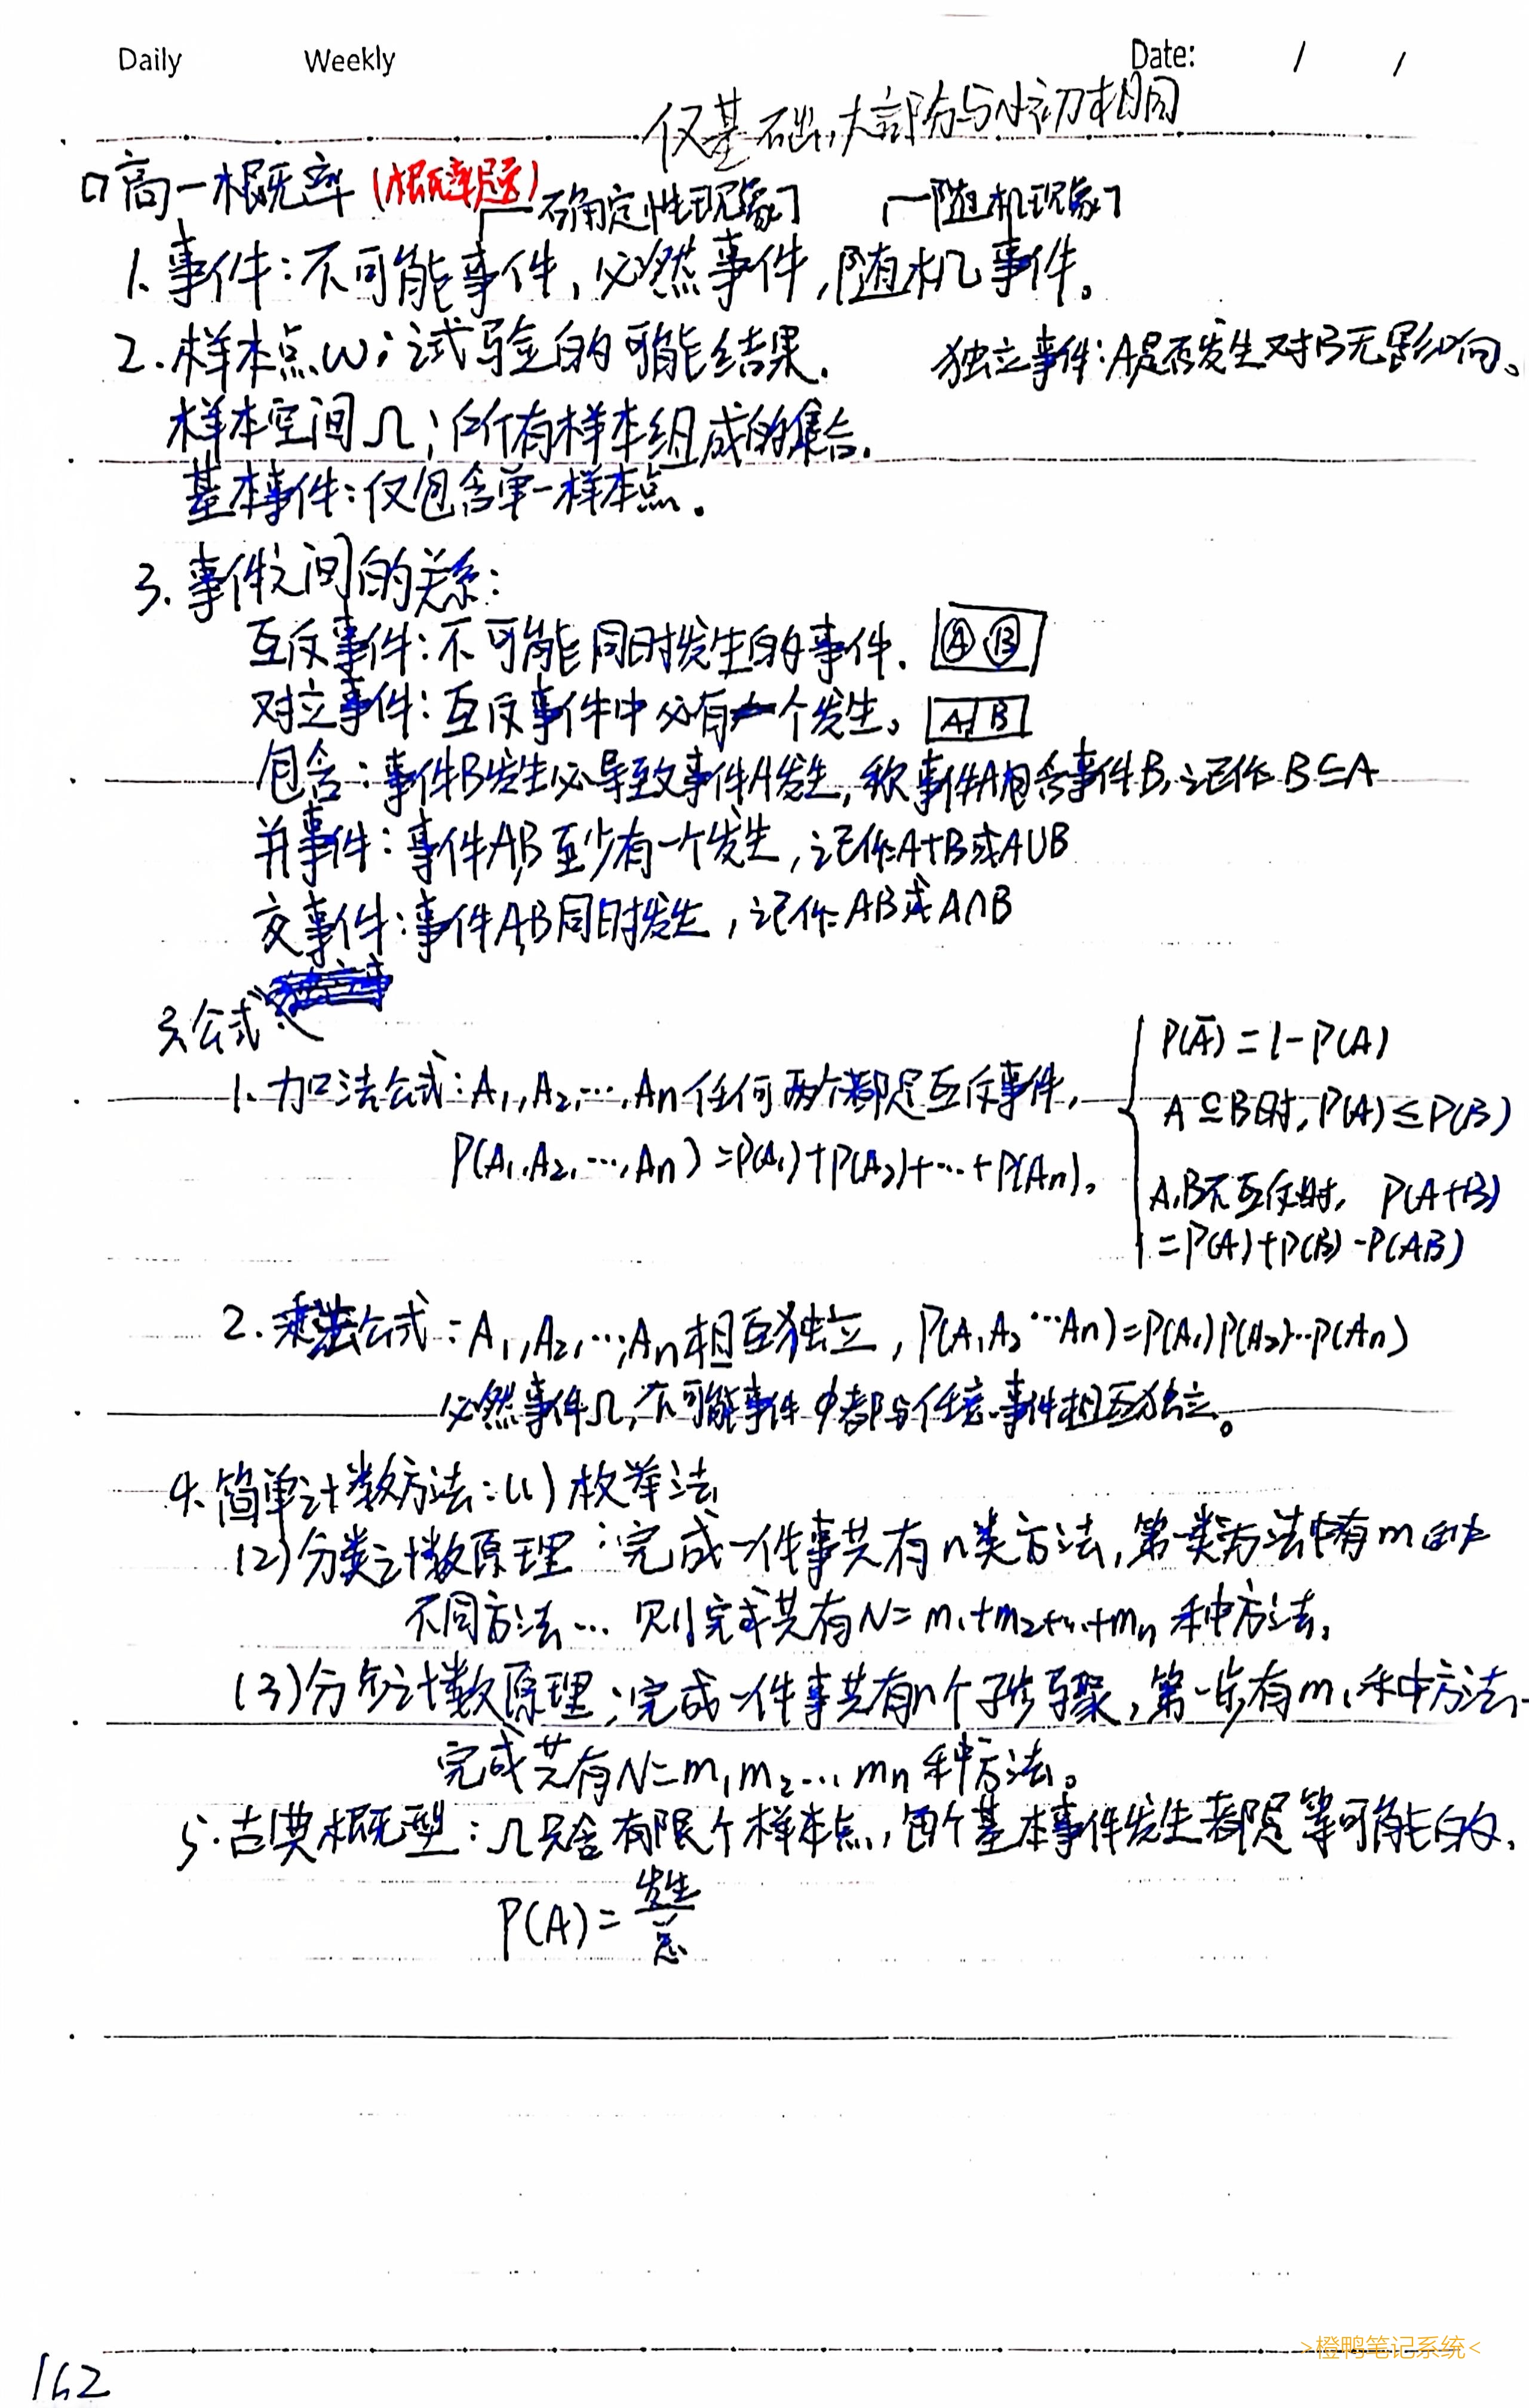 Daily Weekly Date: / /
仅基础,大部分与小初相同
口高一概率(概率题)
确定性现象 随机现象
1.事件:不可能事件,必然事件,随机事件。
2.样本点ω:试验的可能结果. 独立事件:A是否发生对B无影响。
样本空间Ω:所有样本组成的集合.
基本事件:仅包含单一样本点.
3.事件之间的关系:
互斥事件:不可能同时发生的事件. A B
对立事件:互斥事件中必有一个发生。 A B
包含:事件B发生必导致事件A发生,称事件A包含事件B,记作B⊆A
并事件:事件A,B至少有一个发生,记作A+B或A∪B
交事件:事件A,B同时发生,记作AB或A∩B
3.公式:
P(Ā)=1-P(A)
1.加法公式:A₁,A₂,…,An任何两个都是互斥事件,
A⊆B时,P(A)≤P(B)
P(A₁,A₂,…,An)=P(A₁)+P(A₂)+…+P(An)。
A,B不互斥时, P(A+B)
=P(A)+P(B)-P(AB)
2.乘法公式:A₁,A₂,…,An相互独立,P(A₁A₂…An)=P(A₁)P(A₂)…P(An)
必然事件Ω,不可能事件φ都与任意事件相互独立。
4.简单计数方法:(1)枚举法
(2)分类计数原理:完成一件事共有n类方法,第一类方法中有m种
不同方法… 则完成共有N=m₁+m₂+…+mn种方法.
(3)分步计数原理:完成一件事共有n个子步骤,第一步有m₁种方法…
完成共有N=m₁m₂…mn种方法。
5.古典概型:Ω只含有限个样本点,每个基本事件发生都是等可能的.
P(A)=发生/总
162
>橙鸭笔记系统<